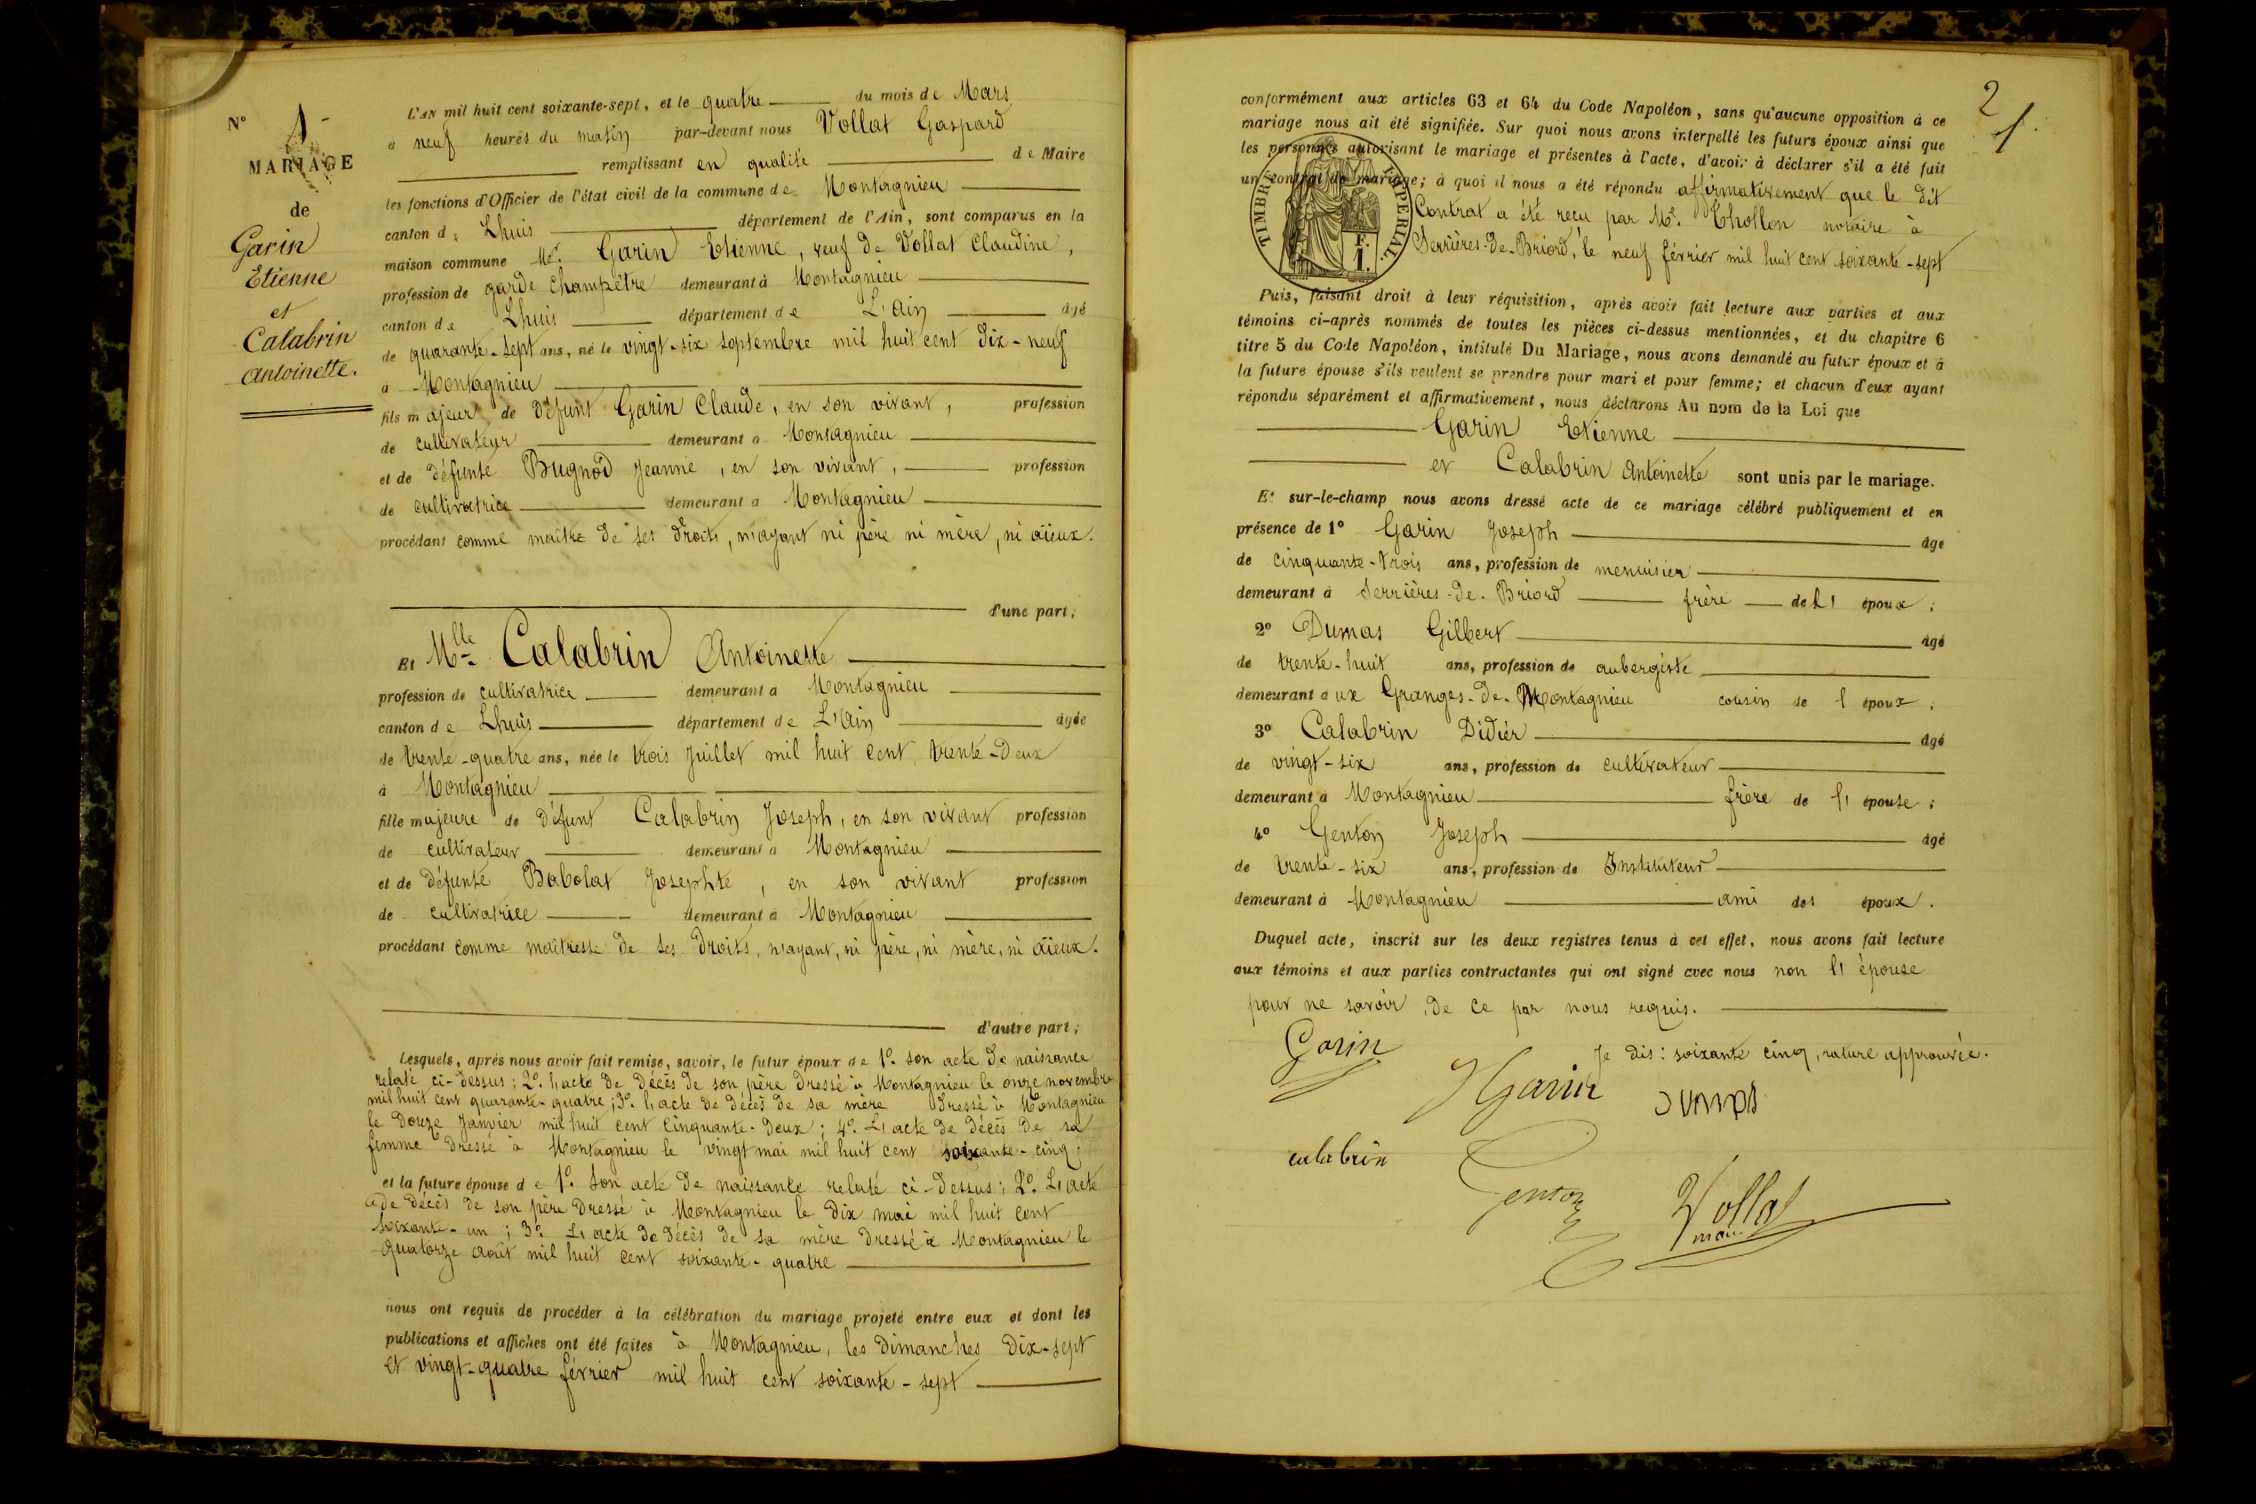 N° 1
MARIAGE
de
Garin
Etienne
et
Calabrin
Antoinette.
L'AN mil huit cent soixante-sept, et le quatre du mois de Mars
à neuf heures du matin par-devant nous Vollat Gaspard
remplissant en qualité de Maire
les fonctions d'Officier de l'état civil de la commune de Montagnieu
canton de Lhuis département de l'Ain, sont comparus en la
maison commune Mr. Garin Etienne, veuf de Vollat Claudine,
profession de garde champêtre demeurant à Montagnieu
canton de Lhuis département de L'Ain âgé
de quarante-sept ans, né le vingt-six septembre mil huit cent dix-neuf
à Montagnieu
fils majeur de défunt Garin Claude, en son vivant, profession
de cultivateur demeurant à Montagnieu
et de défunte Bugnod Jeanne, en son vivant, profession
de cultivatrice demeurant à Montagnieu
procédant comme maître de ses droits, n'ayant ni père ni mère, ni aïeux.
d'une part;
Et Mlle Calabrin Antoinette
profession de cultivatrice demeurant à Montagnieu
canton de Lhuis département de L'Ain âgée
de trente-quatre ans, née le trois Juillet mil huit cent trente-deux
à Montagnieu
fille majeure de défunt Calabrin Joseph, en son vivant profession
de cultivateur demeurant à Montagnieu
et de défunte Babolat Josephte, en son vivant profession
de cultivatrice demeurant à Montagnieu
procédant comme maîtresse de ses droits, n'ayant, ni père, ni mère, ni aïeux.
d'autre part;
Lesquels, après nous avoir fait remise, savoir, le futur époux de 1° son acte de naissance
relaté ci-dessus; 2° l'acte de décès de son père dressé à Montagnieu le onze novembre
mil huit cent quarante-quatre; 3° l'acte de décès de sa mère dressé à Montagnieu
le douze Janvier mil huit cent cinquante-deux; 4° L'acte de décès de sa
femme dressé à Montagnieu le vingt mai mil huit cent soixante-cinq;
et la future épouse de 1° Son acte de naissance relaté ci-dessus; 2° L'acte
de décès de son père dressé à Montagnieu le dix mai mil huit cent
soixante-un; 3° L'acte de décès de sa mère dressé à Montagnieu le
quatorze août mil huit cent soixante-quatre
nous ont requis de procéder à la célébration du mariage projeté entre eux et dont les
publications et affiches ont été faites à Montagnieu, les dimanches dix-sept
et vingt-quatre février mil huit cent soixante-sept
2
1
conformément aux articles 63 et 64 du Code Napoléon, sans qu'aucune opposition à ce
mariage nous ait été signifiée. Sur quoi nous avons interpellé les futurs époux ainsi que
les personnes autorisant le mariage et présentes à l'acte, d'avoir à déclarer s'il a été fait
un contrat de mariage; à quoi il nous a été répondu affirmativement que le dit
Contrat a été reçu par Me. Thollon notaire à
Serrières-de-Briord, le neuf février mil huit cent soixante-sept
TIMBRE IMPERIAL.
F.
1.
Puis, faisant droit à leur réquisition, après avoir fait lecture aux parties et aux
témoins ci-après nommés de toutes les pièces ci-dessus mentionnées, et du chapitre 6
titre 5 du Code Napoléon, intitulé Du Mariage, nous avons demandé au futur époux et à
la future épouse s'ils veulent se prendre pour mari et pour femme; et chacun d'eux ayant
répondu séparément et affirmativement, nous déclarons Au nom de la Loi que
Garin Etienne
et Calabrin Antoinette sont unis par le mariage.
Et sur-le-champ nous avons dressé acte de ce mariage célébré publiquement et en
présence de 1° Garin Joseph âgé
de cinquante-trois ans, profession de menuisier
demeurant à Serrières-de-Briord frère de l'époux;
2° Dumas Gilbert âgé
de trente-huit ans, profession de aubergiste
demeurant aux Granges-de-Montagnieu cousin de l'époux;
3° Calabrin Didier âgé
de vingt-six ans, profession de cultivateur
demeurant à Montagnieu frère de l'épouse;
4° Genton Joseph âgé
de trente-six ans, profession de Instituteur
demeurant à Montagnieu ami des époux.
Duquel acte, inscrit sur les deux registres tenus à cet effet, nous avons fait lecture
aux témoins et aux parties contractantes qui ont signé avec nous non l'épouse
pour ne savoir, de ce par nous requis.
Je dis: soixante cinq, rature approuvée.
Garin
J Garin
Dumas
calabrin
Genton
Vollat
maire